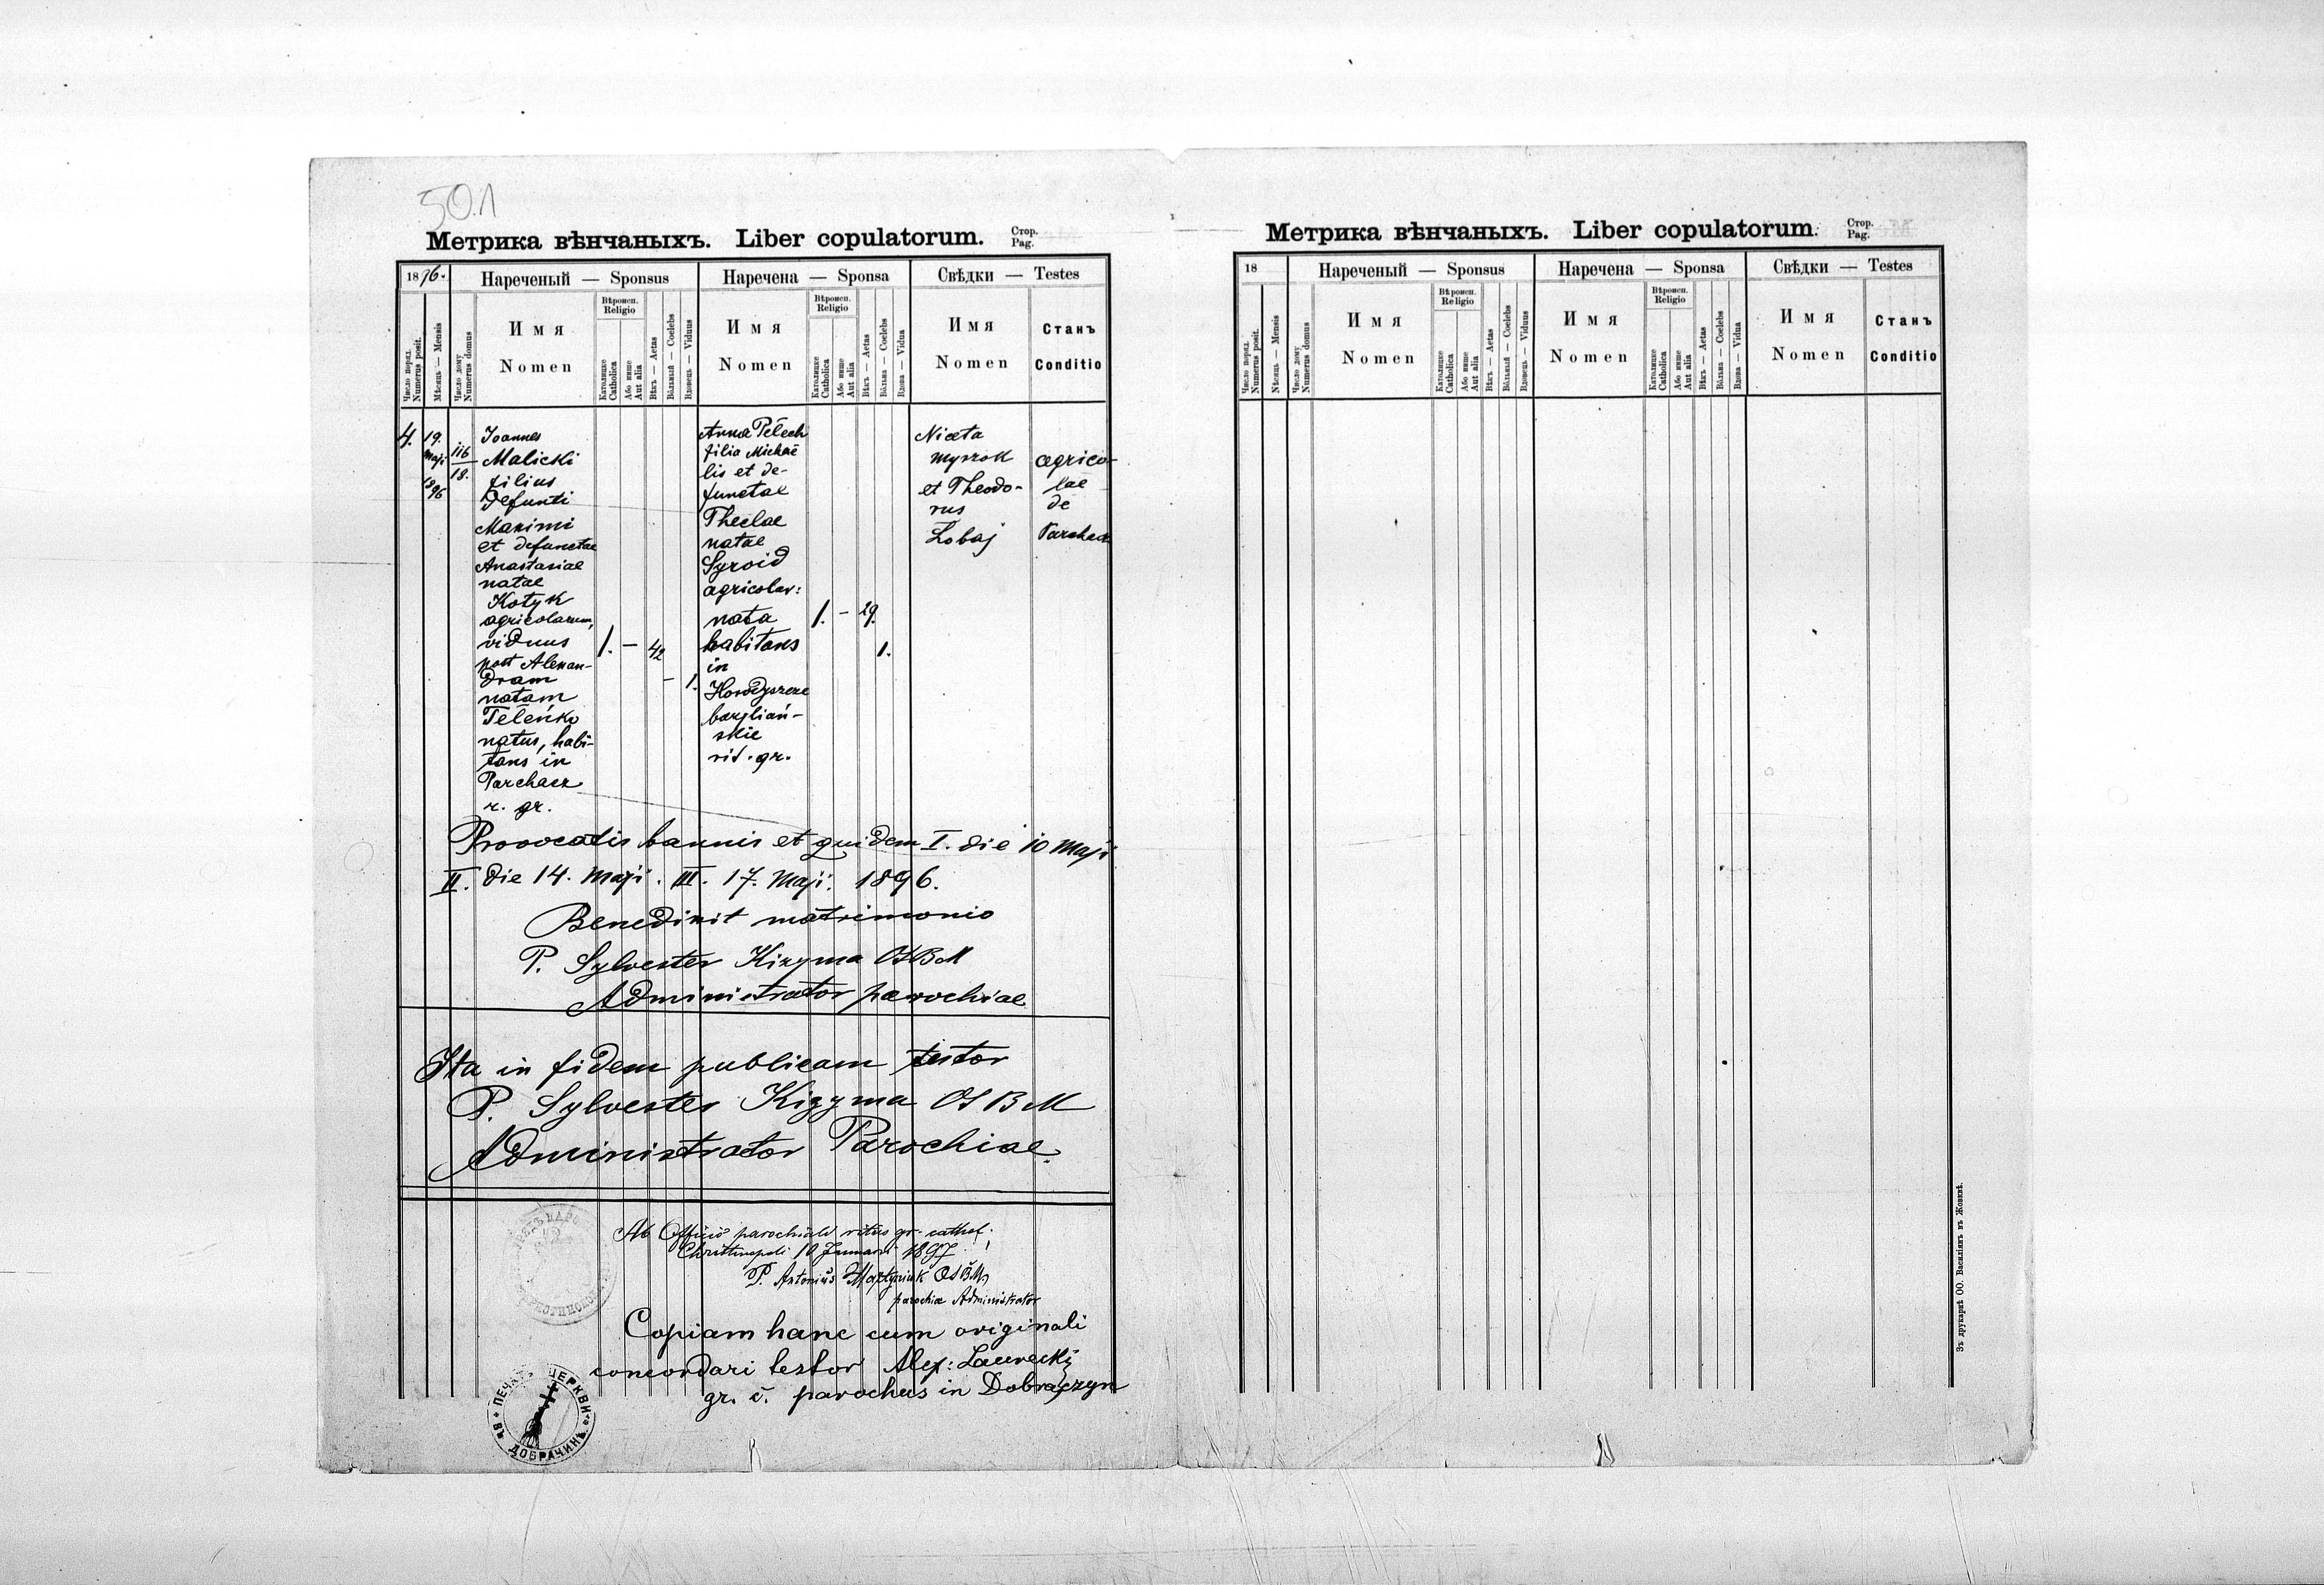 501
Метрика вѣнчаныхъ. Liber copulatorum. Стор. Pag.
1896.
Нареченый — Sponsus
Наречена — Sponsa
Свѣдки — Testes
Число поряд. Numerus posit.
Мѣсяць — Mensis
Число дому Numerus domus
Имя Nomen
Вѣроисп. Religio
Католицке Catholica
Або иише Aut alia
Вѣкъ — Aetas
Вольный — Coelebs
Вдовець — Viduus
Имя Nomen
Вѣроисп. Religio
Католицке Catholica
Або иише Aut alia
Вѣкъ — Aetas
Вольна — Coelebs
Вдова — Vidua
Имя Nomen
Станъ Conditio
4.
19.
Maji
1896
116
18.
Joannes
Malicki
filius
Defunti
Maximi
et defunctae
Anastasiae
natae
Kotyk
agricolarum,
viduus
post Alexan-
dram
natam
Teleńko
natus, habi-
tans in
Parchacz
r. gr.
1. — 42 — 1.
Anna Pelech
filia Michaë
lis et de-
functae
Theclae
natae
Syroid
agricolar:
nata
habitans
in
Horodyszcze
bazylian-
skie
rit. gr.
1. — 29.
1.
Niceta
Myszok
et Theodo-
rus
Łobaj
agrico-
lae
de
Parchacz
Provocatis bannis et quidem I. die 10 Maji
II. die 14. Maji. III. 17. Maji. 1896.
Benedixit matrimonio
P. Sylvester Kizyma OSBM
Administrator parochiae
Ita in fidem publicam testor
P. Sylvester Kizyma OSBM
Administrator Parochiae.
Ab Officio parochiali ritus gr. cathol.
Christinopoli 10 Januarii 1897
P. Antonius Martyniuk OSBM,
parochiae Administrator
Copiam hanc cum originali
concordari testor Alex: Laurecki
gr. c. parochus in Dobraczyn
ПЕЧАТЬ ЦЕРКВИ ВЪ ДОБРАЧИНѢ
Метрика вѣнчаныхъ. Liber copulatorum. Стор. Pag.
18
Нареченый — Sponsus
Наречена — Sponsa
Свѣдки — Testes
Число поряд. Numerus posit.
Мѣсяць — Mensis
Число дому Numerus domus
Имя Nomen
Вѣроисп. Religio
Католицке Catholica
Або иише Aut alia
Вѣкъ — Aetas
Вольный — Coelebs
Вдовець — Viduus
Имя Nomen
Вѣроисп. Religio
Католицке Catholica
Або иише Aut alia
Вѣкъ — Aetas
Вольна — Coelebs
Вдова — Vidua
Имя Nomen
Станъ Conditio
Зъ друкарнѣ ОО. Василіянъ въ Жовквѣ.